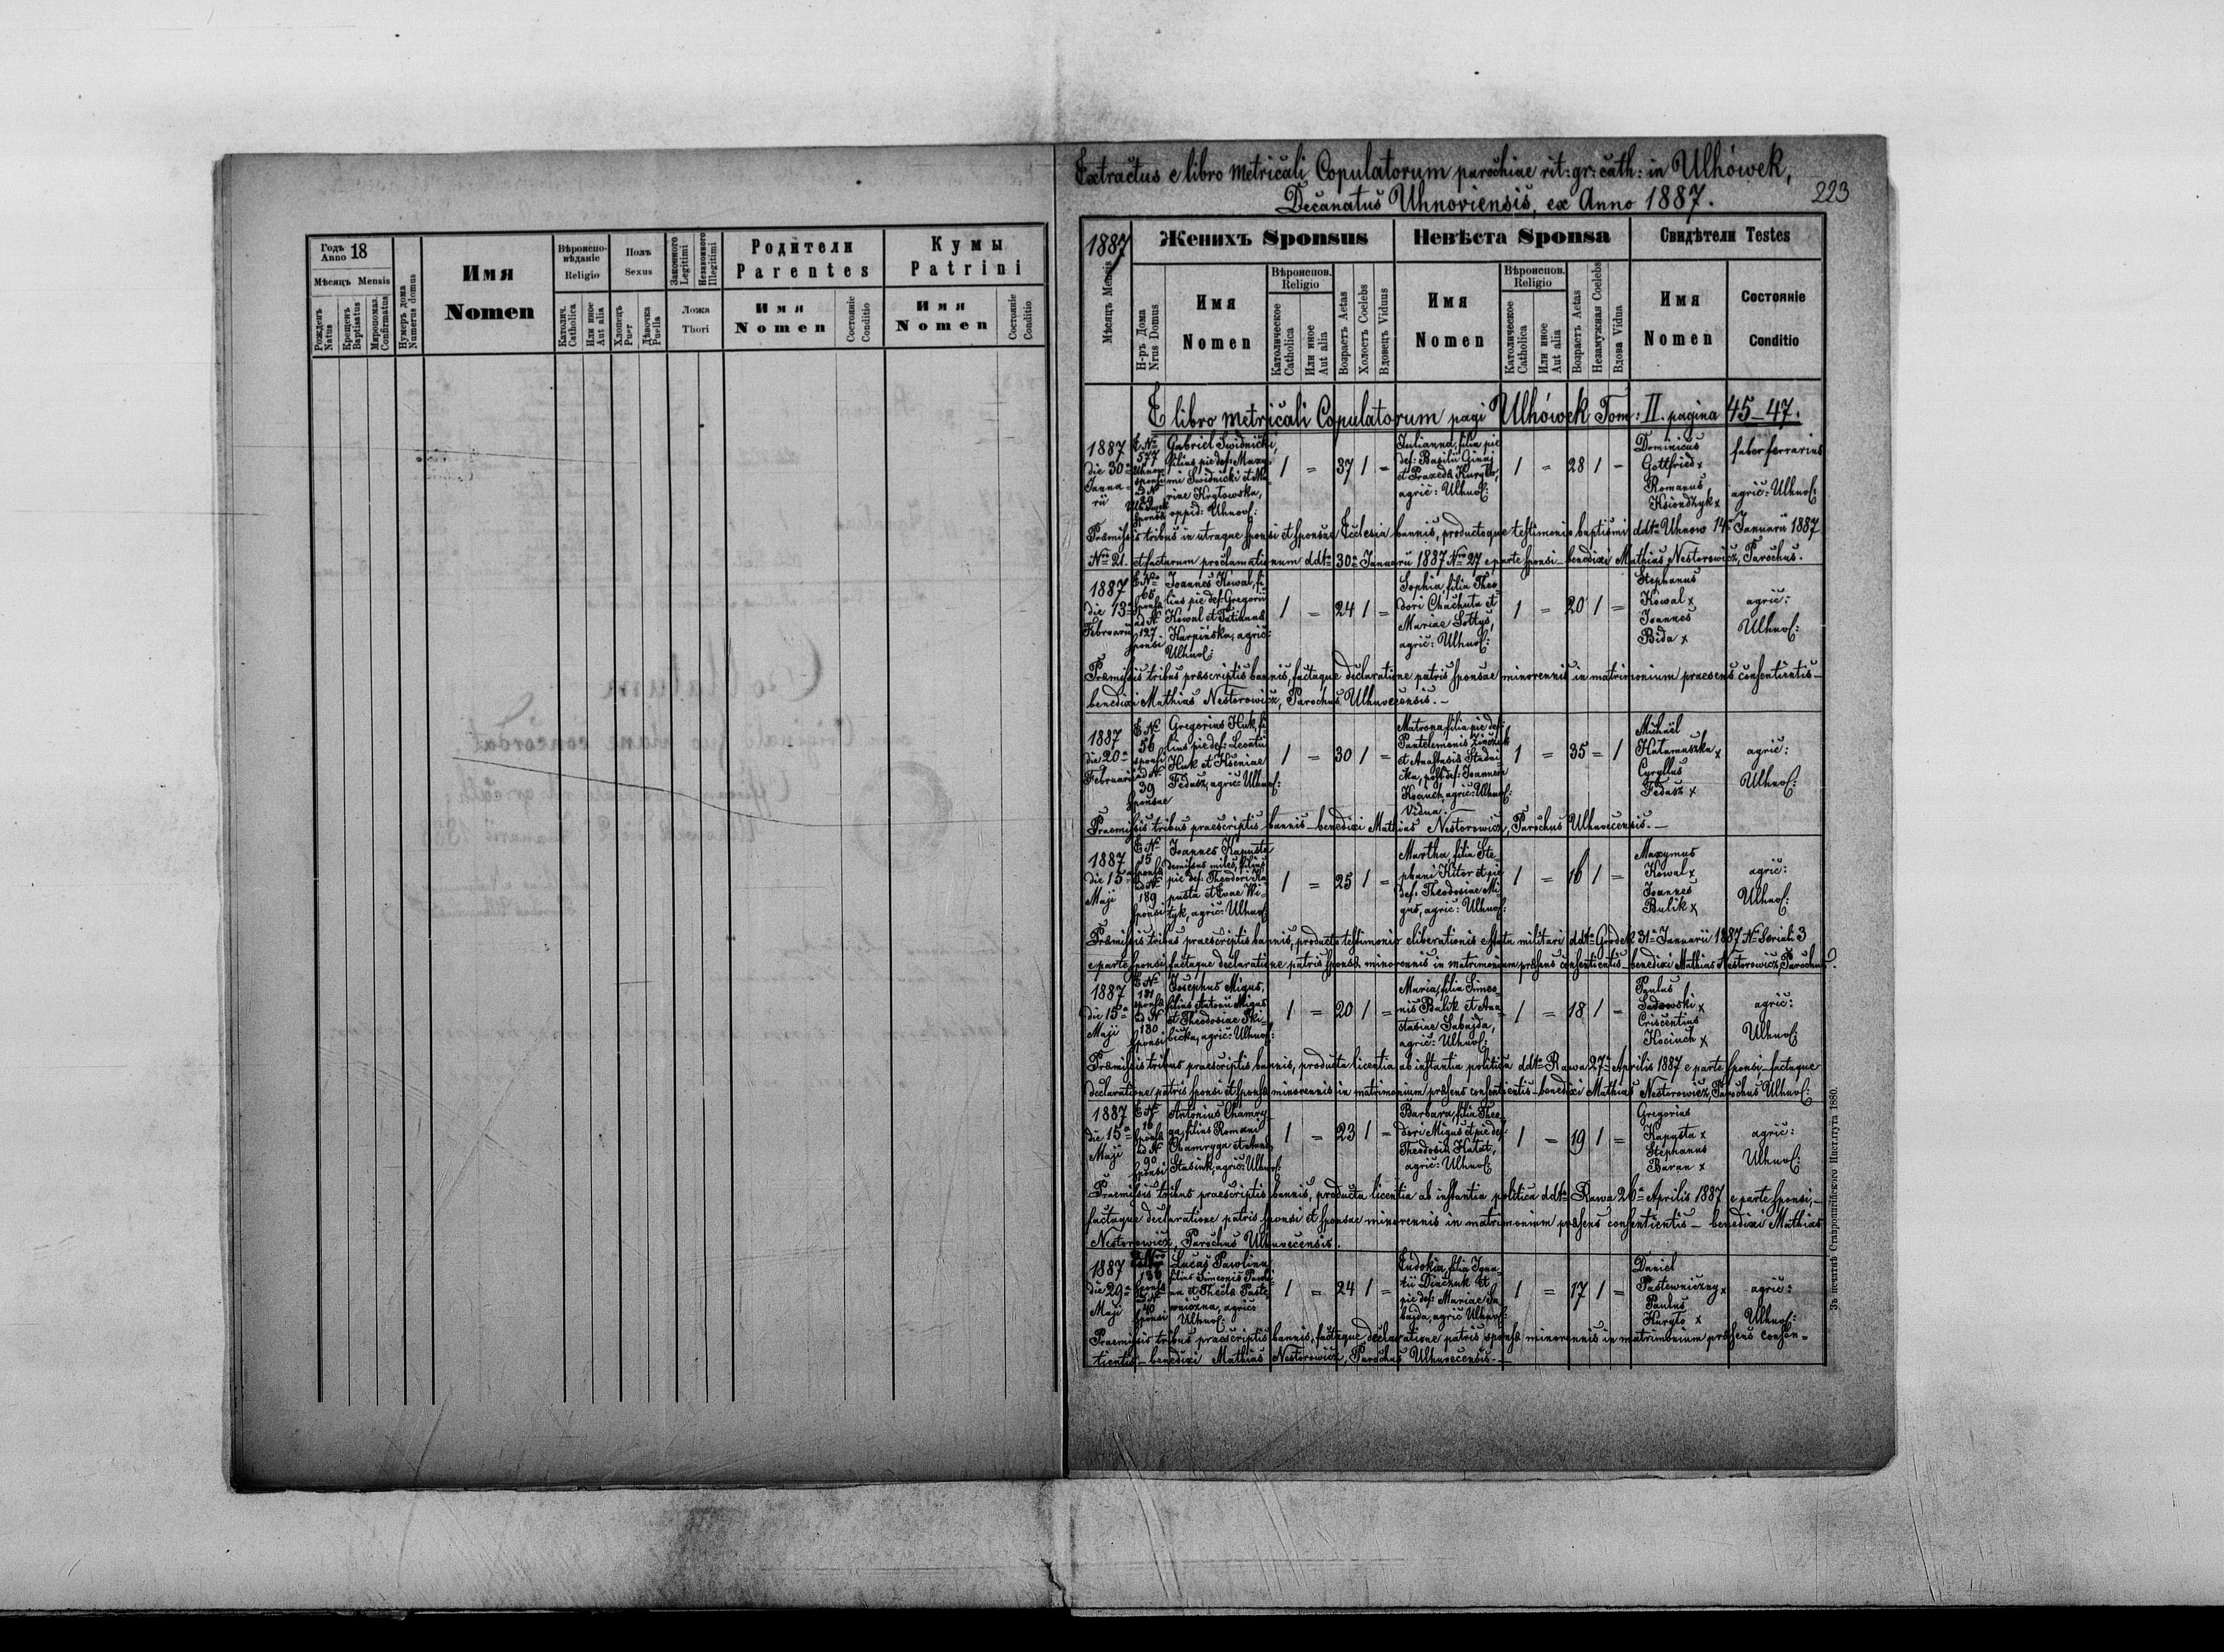 Годъ
Anno 18
Мѣсяцъ Mensis
Рожденъ
Natus
Крещенъ
Baptisatus
Миропомаз.
Confirmatus
Нумеръ дома
Numerus domus
Имя
Nomen
Вѣроиспо-
вѣданіе
Religio
Католич.
Catholica
Или иное
Aut alia
Полъ
Sexus
Хлопецъ
Puer
Дѣвочка
Puella
Законного
Legitimi
Незаконного
Illegitimi
Ложа
Thori
Родители
Parentes
Имя
Nomen
Состояніе
Conditio
Кумы
Patrini
Имя
Nomen
Состояніе
Conditio
Extractus e libro metricali Copulatorum parochiae rit: gr: cath: in Ulhówek,
Decanatus Uhnoviensis, ex Anno 1887.
223
1887
Мѣсяцъ Mensis
Женихъ Sponsus
Н-ръ Дома
Nrus Domus
Имя
Nomen
Вѣроиспов.
Religio
Католическое
Catholica
Или иное
Aut alia
Возрастъ Aetas
Холостъ Coelebs
Вдовецъ Viduus
Невѣста Sponsa
Имя
Nomen
Вѣроиспов.
Religio
Католическое
Catholica
Или иное
Aut alia
Возрастъ Aetas
Незамужная Coelebs
Вдова Vidua
Свидѣтели Testes
Имя
Nomen
Состояніе
Conditio
E libro metricali Copulatorum pagi Ulhówek Tom: II. pagina 45–47.
1887
die 30a
Janua-
rii
E No
577
Uhnow
sponsi
ad No
29
Ulhówek
sponsae
Gabriel Swidnicki,
filius pie def: Maxy-
mi Swidnicki et Ma-
riae Krytowska,
oppid: Uhnov:
1 = 37 1 =
Julianna, filia pie
def: Basilii Ginaj
et Praxeda Kuryło,
agric: Ulhuv:
1 = 28 1 =
Dominicus
Gottfried x
Romanus
Ksiondzyk x
faber ferrarius
agric: Ulhuv:
Praemissis tribus in utraque sponsi et sponsae Ecclesia bannis, productoque testimonio baptismi ddto Uhnow 14a Januarii 1887
No 21. et factarum proclamationum ddto 30a Januarii 1887 Nro 27 e parte sponsi – benedixi Mathias Nestorowicz, Parochus.
1887
die 13a
Februarii
E No
65
sponsae
ad No
127
sponsi
Joannes Kowal, fi-
lius pie def: Gregorii
Kowal et Tatianna
Karpińska, agric:
Ulhuv:
1 = 24 1 =
Sophia, filia Theo-
dori Chachuta et
Mariae Sołtys,
agric: Ulhuv:
1 = 20 1 =
Stephanus
Kowal x
Joannes
Bida x
agric:
Ulhuv:
Praemissis tribus praescriptis bannis, factaque declaratione patris sponsae minorennis in matrimonium praesens consentientis –
benedixi Mathias Nestorowicz, Parochus Ulhuvecensis. –
1887
die 20a
Februarii
E No
56
sponsi
ad No
39
sponsae
Gregorius Huk, fi-
lius pie def: Leontii
Huk et Xseniae
Fedusz, agric: Ulhuv:
1 = 30 1 =
Matrona, filia pie def:
Pantelemonis
et Anastasia Stadni-
cka, post def: Joannem
Kociuch, agric: Ulhuv:
vidua.
1 = 35 = 1
Michaël
Hałamaszka x
Cyryllus
Fedusz x
agric:
Ulhuv:
Praemissis tribus praescriptis bannis – benedixi Mathias Nestorowicz, Parochus Ulhuvecensis. –
1887
die 15a
Maji
E No
15
sponsae
ad No
189
sponsi
Joannes Kapusta
demissus miles, filius
pie def: Theodori Ka-
pusta et Evae Wi-
tyk, agric: Ulhuv:
1 = 25 1 =
Martha, filia Ste-
phani Kitor et pie
def: Theodosiae Mi-
gus, agric: Ulhuv:
1 = 16 1 =
Maxymus
Kowal x
Joannes
Bulik x
agric:
Ulhuv:
Praemissis tribus praescriptis bannis, producto testimonio eliberationis e statu militari ddto Grodek 31a Januarii 1887 No Seriali 3
e parte sponsi factaque declaratione patris sponsae minorennis in matrimonium praesens consentientis – benedixi Mathias Nestorowicz, Parochus.
1887
die 15a
Maji
E No
181
sponsae
ad No
130
sponsi
Josephus Migus,
filius Antonii Migus
et Theodosiae Ski-
bicka, agric: Ulhuv:
1 = 20 1 =
Maria, filia Simeo-
nis Bulik et Ana-
stasiae Sabajda,
agric: Ulhuv:
1 = 18 1 =
Paulus
Sadowski x
Criscentius
Kociuch x
agric:
Ulhuv:
Praemissis tribus praescriptis bannis, producta licentia ab instantia politica ddto Rawa 27a Aprilis 1887 e parte sponsi – factaque
declaratione patris sponsi et sponsae minorennis in matrimonium praesens consentientis – benedixi Mathias Nestorowicz, Parochus Ulhuv:
1887
die 15a
Maji
E No
16
sponsae
ad No
90
sponsi
Antonius Chamry-
ga, filius Romani
Chamryga et Anna
Stasiuk, agric: Ulhuv:
1 = 23 1 =
Barbara, filia Theo-
dori Migus et pie def:
Theodosia Hałat,
agric: Ulhuv:
1 = 19 1 =
Gregorius
Kapusta x
Stephanus
Baran x
agric:
Ulhuv:
Praemissis tribus praescriptis bannis, producta licentia ab instantia politica ddto Rawa 26a Aprilis 1887 e parte sponsi, –
factaque declaratione patris sponsi et sponsae minorennis in matrimonium praesens consentientis – benedixi Mathias
Nestorowicz, Parochus Ulhuvecensis.
1887
die 29a
Maji
sponsae
ad No
40
sponsi
Lucas Pawlina
filius Simeonis Pawli-
na et Thecla Paste-
wniczna, agric:
Ulhuv:
1 = 24 1 =
Eudokia, filia Igna-
tii Dinczuk et
pie def: Mariae Sa-
bajda, agric: Ulhuv:
1 = 17 1 =
Daniel
Pastewniczny x
Paulus
Kuryło x
agric:
Ulhuv:
Praemissis tribus praescriptis bannis, factaque declaratione patris sponsae minorennis in matrimonium praesens consen-
tientis – benedixi Mathias Nestorowicz, Parochus Ulhuvecensis. –
Зъ печатнѣ Ставропигійского Института 1880.